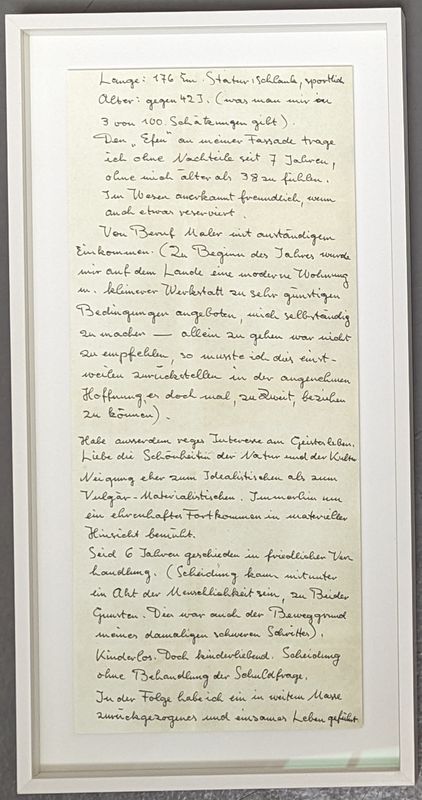 Lange: 176 cm. Statur: schlank, sportlich
Alter: gegen 42 J. (was man mir in
3 von 100. Schätzungen gibt).
Den „Efeu" an meiner Fassade trage
ich ohne Nachteile seit 7 Jahren,
ohne mich älter als 38 zu fühlen.
Im Wesen anerkannt freundlich, wenn
auch etwas reserviert.
Von Beruf Maler mit anständigem
Einkommen. (Zu Beginn des Jahres wurde
mir auf dem Lande eine moderne Wohnung
m. kleinerer Werkstatt zu sehr günstigen
Bedingungen angeboten, mich selbständig
zu machen — allein zu gehen war nicht
zu empfehlen, so musste ich dies einst-
weilen zurückstellen in der angenehmen
Hoffnung, es doch mal, zu Zweit, beziehen
zu können).
Habe ausserdem reges Interesse am Geistesleben.
Liebe die Schönheiten der Natur und der Kultur
Neigung eher zum Idealistischen als zum
Vulgär-Materialistischen. Immerhin um
ein ehrenhaftes Fortkommen in materieller
Hinsicht bemüht.
Seid 6 Jahren geschieden in friedlicher Ver
handlung. (Scheidung kann mitunter
ein Akt der Menschlichkeit sein, zu Beider
Gunsten. Dies war auch der Beweggrund
meines damaligen schweren Schrittes).
Kinderlos. Doch kinderliebend. Scheidung
ohne Behandlung der Schuldfrage.
In der Folge habe ich ein in weitem Masse
zurückgezogenes und einsames Leben geführt.